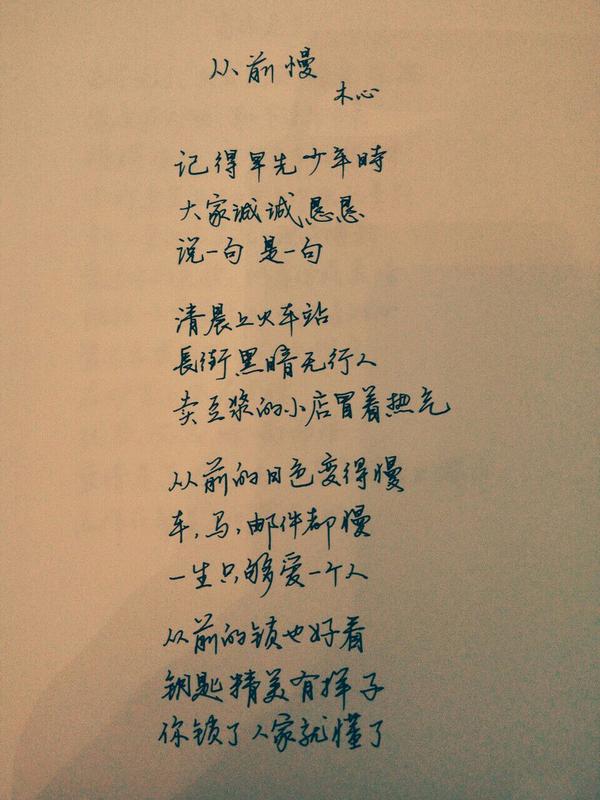 从前慢
木心
记得早先少年時
大家诚诚恳恳
说一句 是一句
清晨上火车站
長街黑暗无行人
卖豆浆的小店冒着热气
从前的日色变得慢
车,马,邮件都慢
一生只够爱一个人
从前的锁也好看
钥匙精美有样子
你锁了人家就懂了